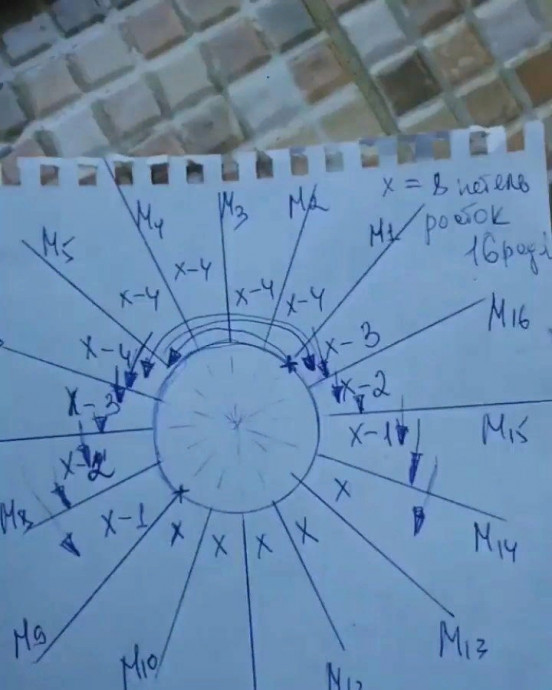 x = 8 петель
росток
M4
M3
M2
M1
M5
x-4
x-4
x-4
x-4
x-4
x-3
M16
x-3
x-2
x-2
x-1
M15
x-1
x
M8
x
x
x
x
M14
M9
M10
M12
M13